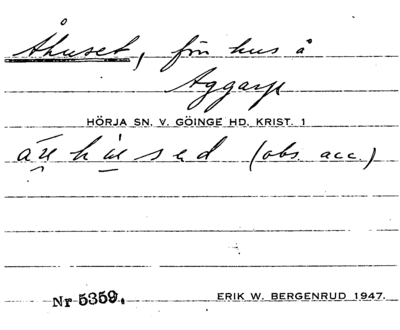 Åhuset, för hus å
Aggarp
HÖRJA SN. V. GÖINGE HD. KRIST. 1
(obs. acc.)
Nr 5359.
ERIK W. BERGENRUD 1947.